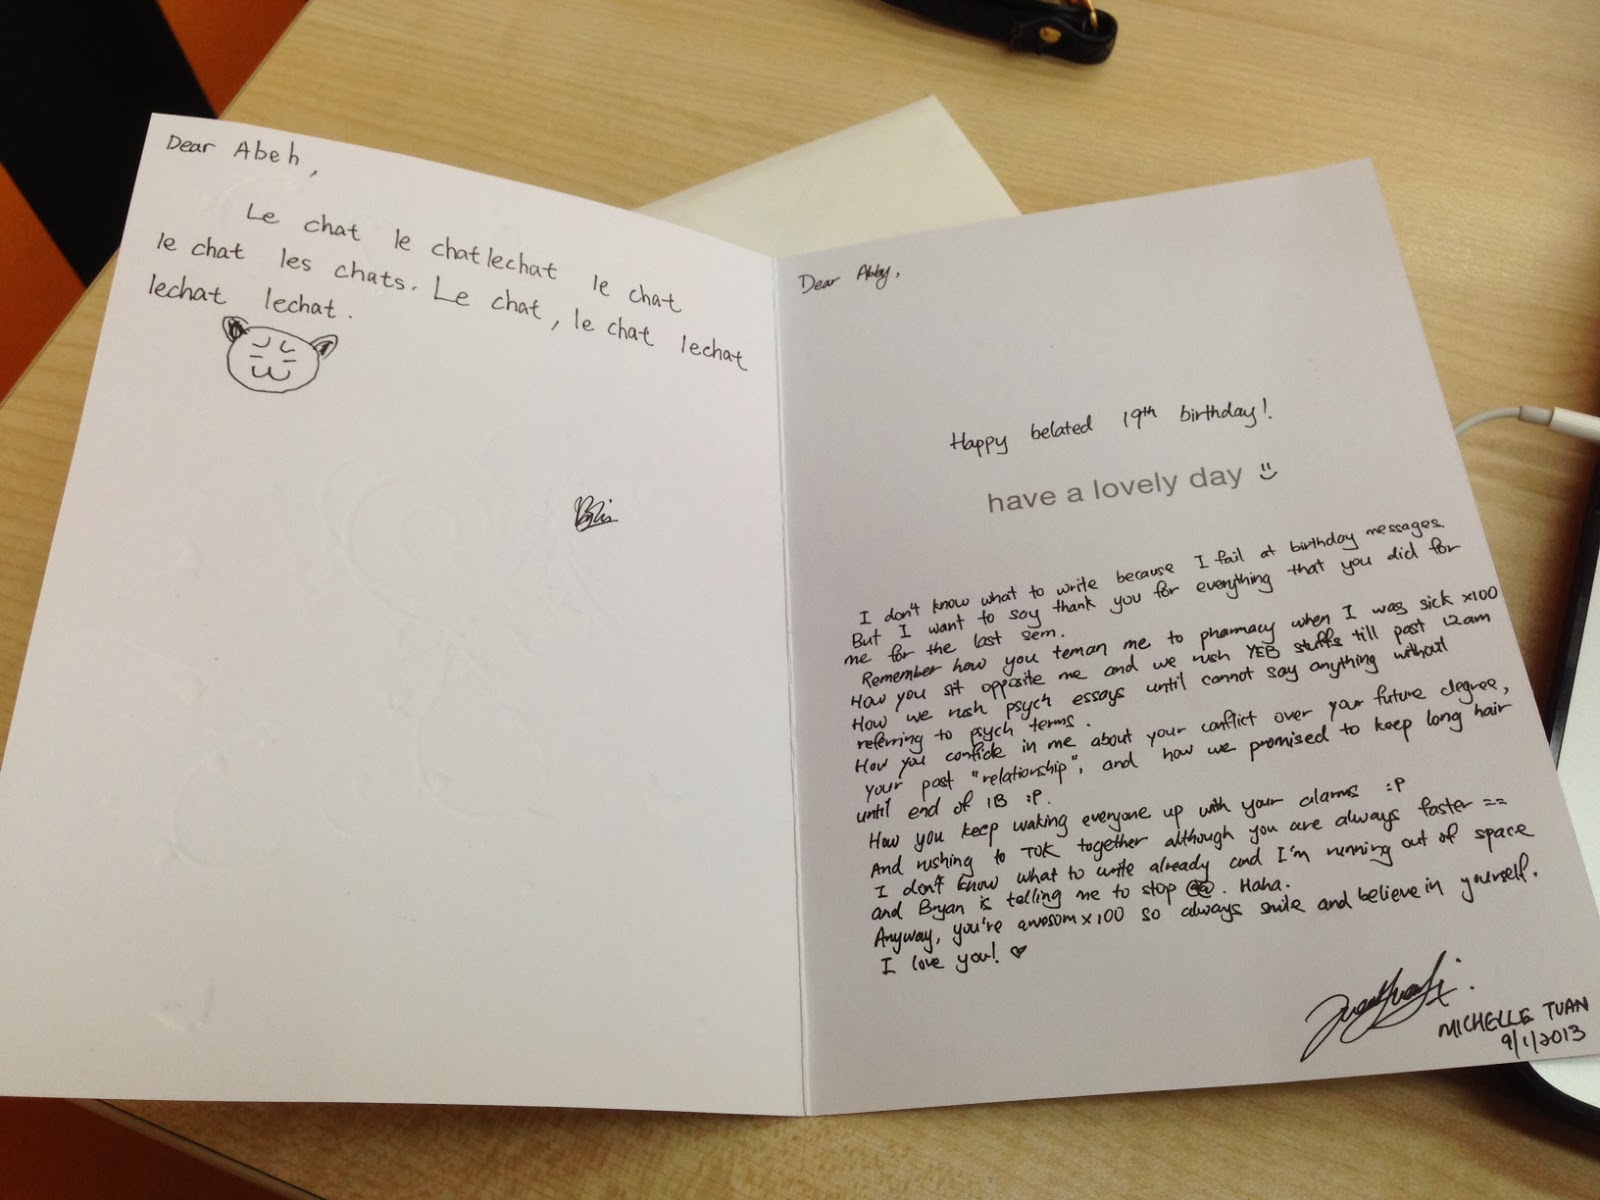 Dear Abeh,
Le chat le chatlechat le chat
le chat les chats. Le chat, le chat lechat
lechat lechat.
Dear Abby,
Happy belated 19th birthday!
have a lovely day
I don't know what to write because I fail at birthday messages.
But I want to say thank you for everything that you did for
me for the last sem.
Remember how you teman me to pharmacy when I was sick x100
How you sit opposite me and we rush YEB stuffs till past 12am
How we rush psych essays until cannot say anything without
referring to psych terms.
How you confide in me about your conflict over your future degree,
your past "relationship", and how we promised to keep long hair
until end of IB :P.
How you keep waking everyone up with your alarms :P
And rushing to TOK together although you are always faster ==
I don't know what to write already and I'm running out of space
and Bryan is telling me to stop @@. Haha.
Anyway, you're awesom x100 so always smile and believe in yourself.
I love you! ♡
MICHELLE TUAN
9/1/2013